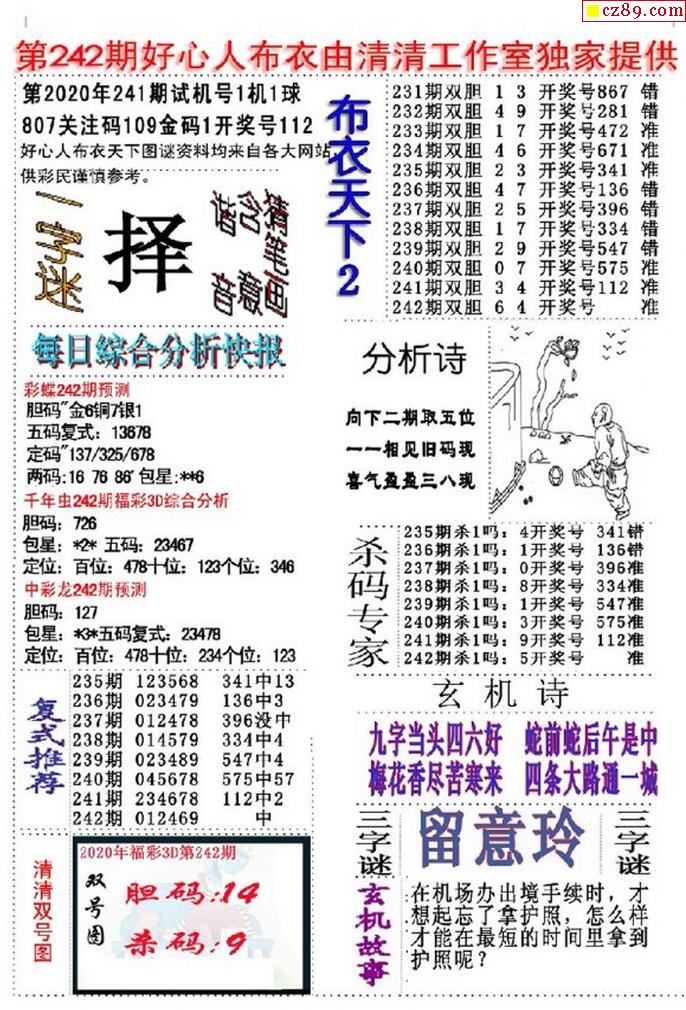 cz89.com
第242期好心人布衣由清清工作室独家提供
第2020年241期试机号1机1球
807关注码109金码1开奖号112
好心人布衣天下图谜资料均来自各大网站,
供彩民谨慎参考。
一字迷
择
谐音
含意
猜笔画
布衣天下2
231期双胆 1 3 开奖号867 错
232期双胆 4 9 开奖号281 错
233期双胆 1 7 开奖号472 准
234期双胆 4 6 开奖号671 准
235期双胆 2 3 开奖号341 准
236期双胆 4 7 开奖号136 错
237期双胆 2 5 开奖号396 错
238期双胆 1 7 开奖号334 错
239期双胆 2 9 开奖号547 错
240期双胆 0 7 开奖号575 准
241期双胆 3 4 开奖号112 准
242期双胆 6 4 开奖号 准
每日综合分析快报
彩蝶242期预测
胆码"金6铜7银1
五码复式：13678
定码"137/325/678
两码:16 76 86' 包星:**6
千年虫242期福彩3D综合分析
胆码：726
包星：*2* 五码：23467
定位：百位：478十位：123个位：346
中彩龙242期预测
胆码：127
包星：*3*五码复式：23478
定位：百位：478十位：234个位：123
分析诗
向下二期取五位
一一相见旧码现
喜气盈盈三八现
杀码专家
235期杀1吗：4开奖号 341错
236期杀1吗：1开奖号 136错
237期杀1吗：0开奖号 396准
238期杀1吗：8开奖号 334准
239期杀1吗：1开奖号 547准
240期杀1吗：3开奖号 575准
241期杀1吗：9开奖号 112准
242期杀1吗：5开奖号 准
复式推荐
235期 123568 341中13
236期 023479 136中3
237期 012478 396没中
238期 014579 334中4
239期 023489 547中4
240期 045678 575中57
241期 234678 112中2
242期 012469 中
玄机诗
九字当头四六好 蛇前蛇后午是中
梅花香尽苦寒来 四条大路通一城
三字谜
留意玲
三字谜
清清双号图
2020年福彩3D第242期
双号图
胆码:14
杀码:9
玄机故事
在机场办出境手续时，才
想起忘了拿护照，怎么样
才能在最短的时间里拿到
护照呢？